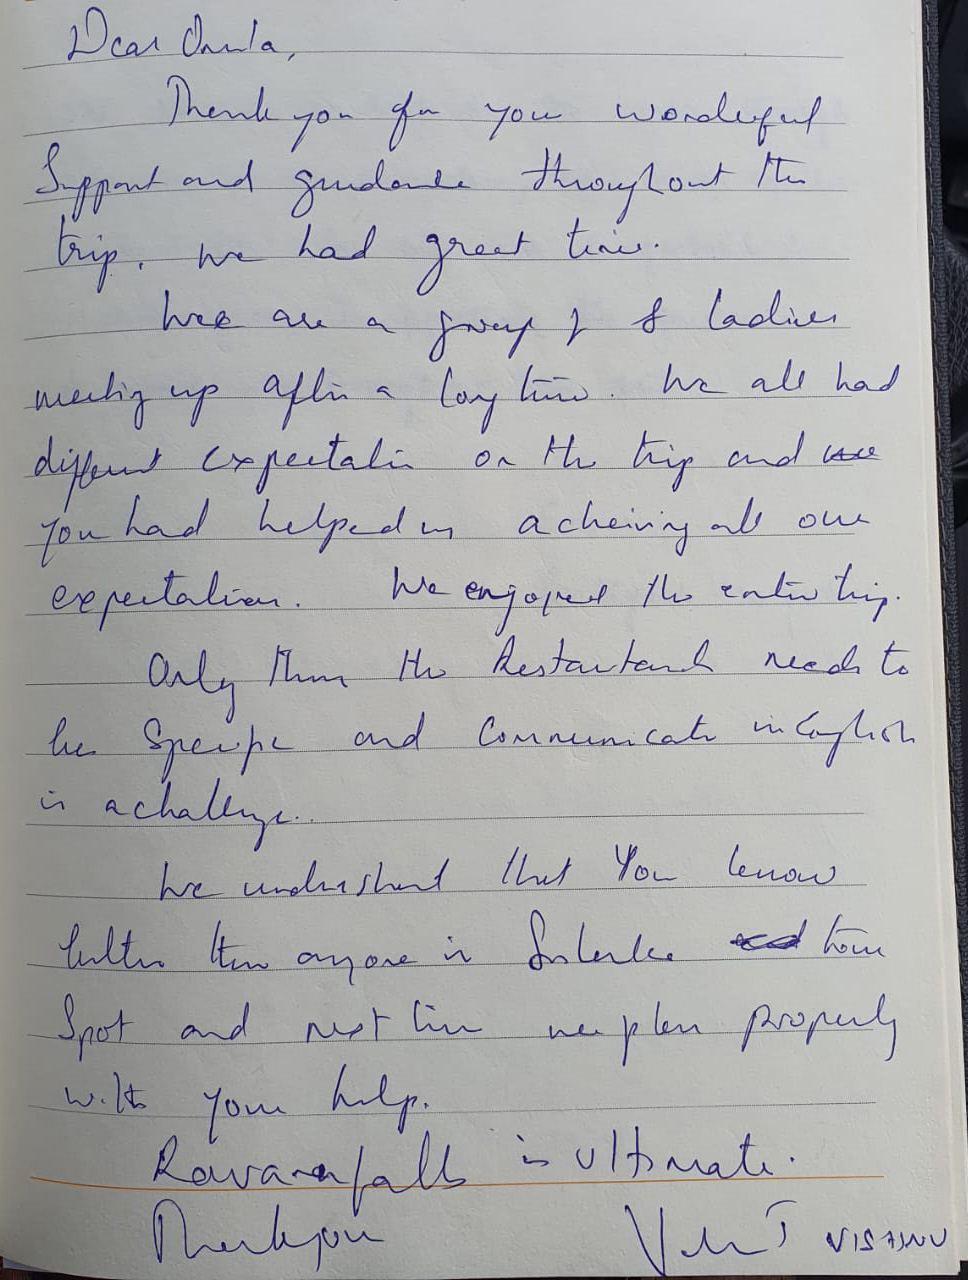 Dear
Thank you for you wonderful
Support and guidance throughout the
trip. We had great time.
Wee are a group of 8 ladies
meetig up after a long time. We all had
different expectation on the trip and
you had helped us acheiving all our
expectations. We enjoyed the entire trip.
Only thing the Restaurant needs to
be Specific and Communicate in English
is a challenge..
We understand that You know
better than anyone in Srilanka tour
Spot and next time we plan properly
with your help.
Ravana falls is ultimate.
Thankyou